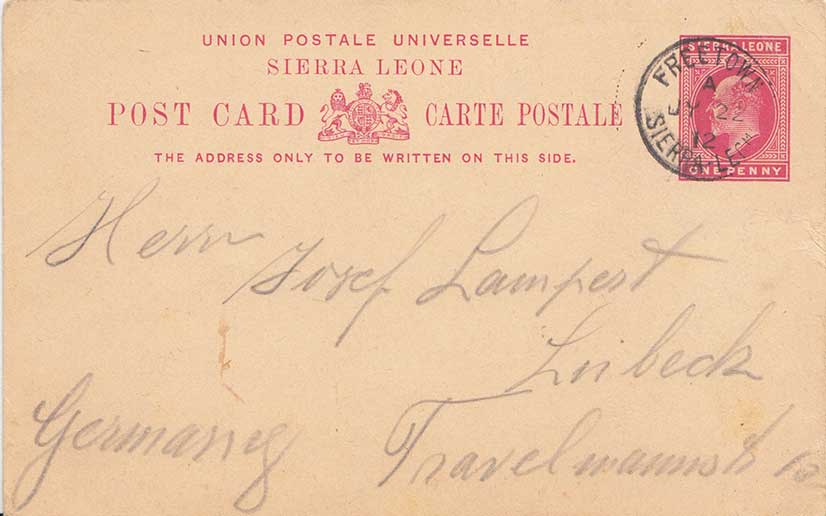 UNION POSTALE UNIVERSELLE
SIERRA LEONE
POST CARD CARTE POSTALE
THE ADDRESS ONLY TO BE WRITTEN ON THIS SIDE.
SIERRA LEONE
ONE PENNY
FREETOWN
A
JY 22
12
SIERRA-LEONE
Herrn
Josef Lampert
Lübeck
Germany